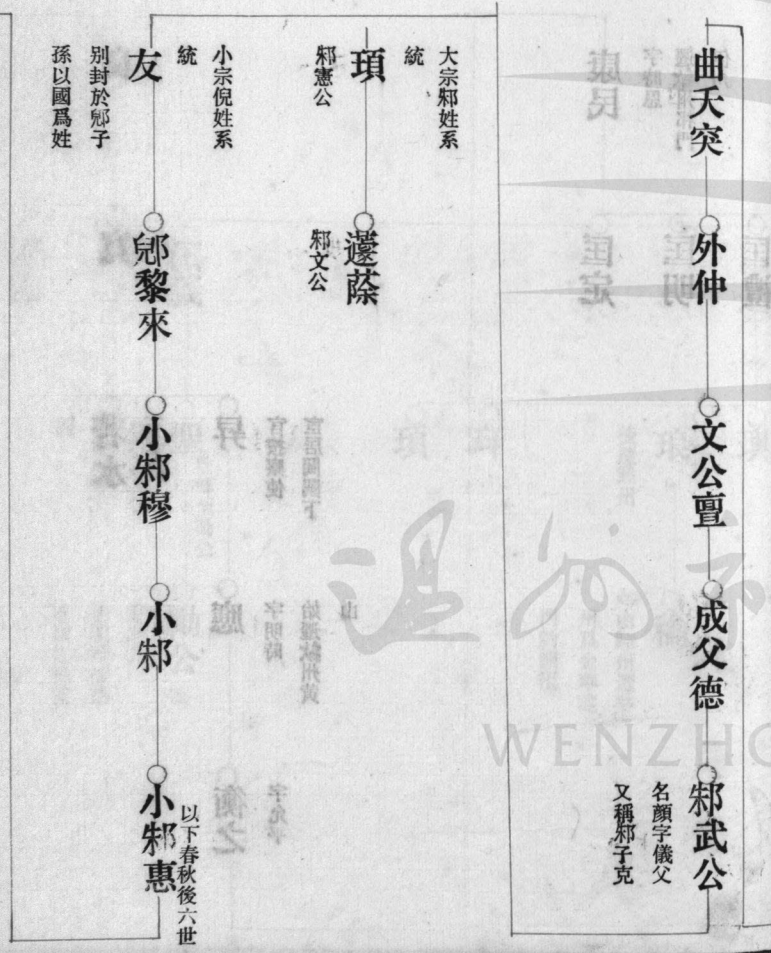 曲夭突
外仲
文公亶
成父德
邾武公
名顏字儀父
又稱邾子克
大宗邾姓系
統
頊
邾憲公
蘧蒢
邾文公
小宗倪姓系
統
友
别封於郳子
孫以國爲姓
郳黎來
小邾穆
小邾
小邾惠
以下春秋後六世
温州
WENZHO